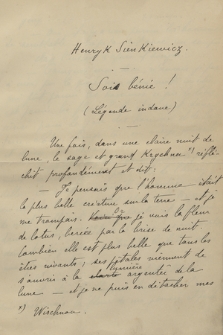 Henryk Sienkiewicz.
Sois bénie !
(Légende indoue)
Une fois, dans une claire nuit de
lune, le sage et grand Krychna *) réflé-
chit profondément et dit :
— Je pensais que l'homme était
la plus belle création sur la terre — et je
me trompais. je vois la fleur
de lotus, bercée par la brise de nuit
Combien elle est plus belle que tous les
êtres vivants ; ses pétales viennent de
s'ouvrir à la lumière argentée de la
lune — et je ne puis en détacher mes
*) Wischnou.